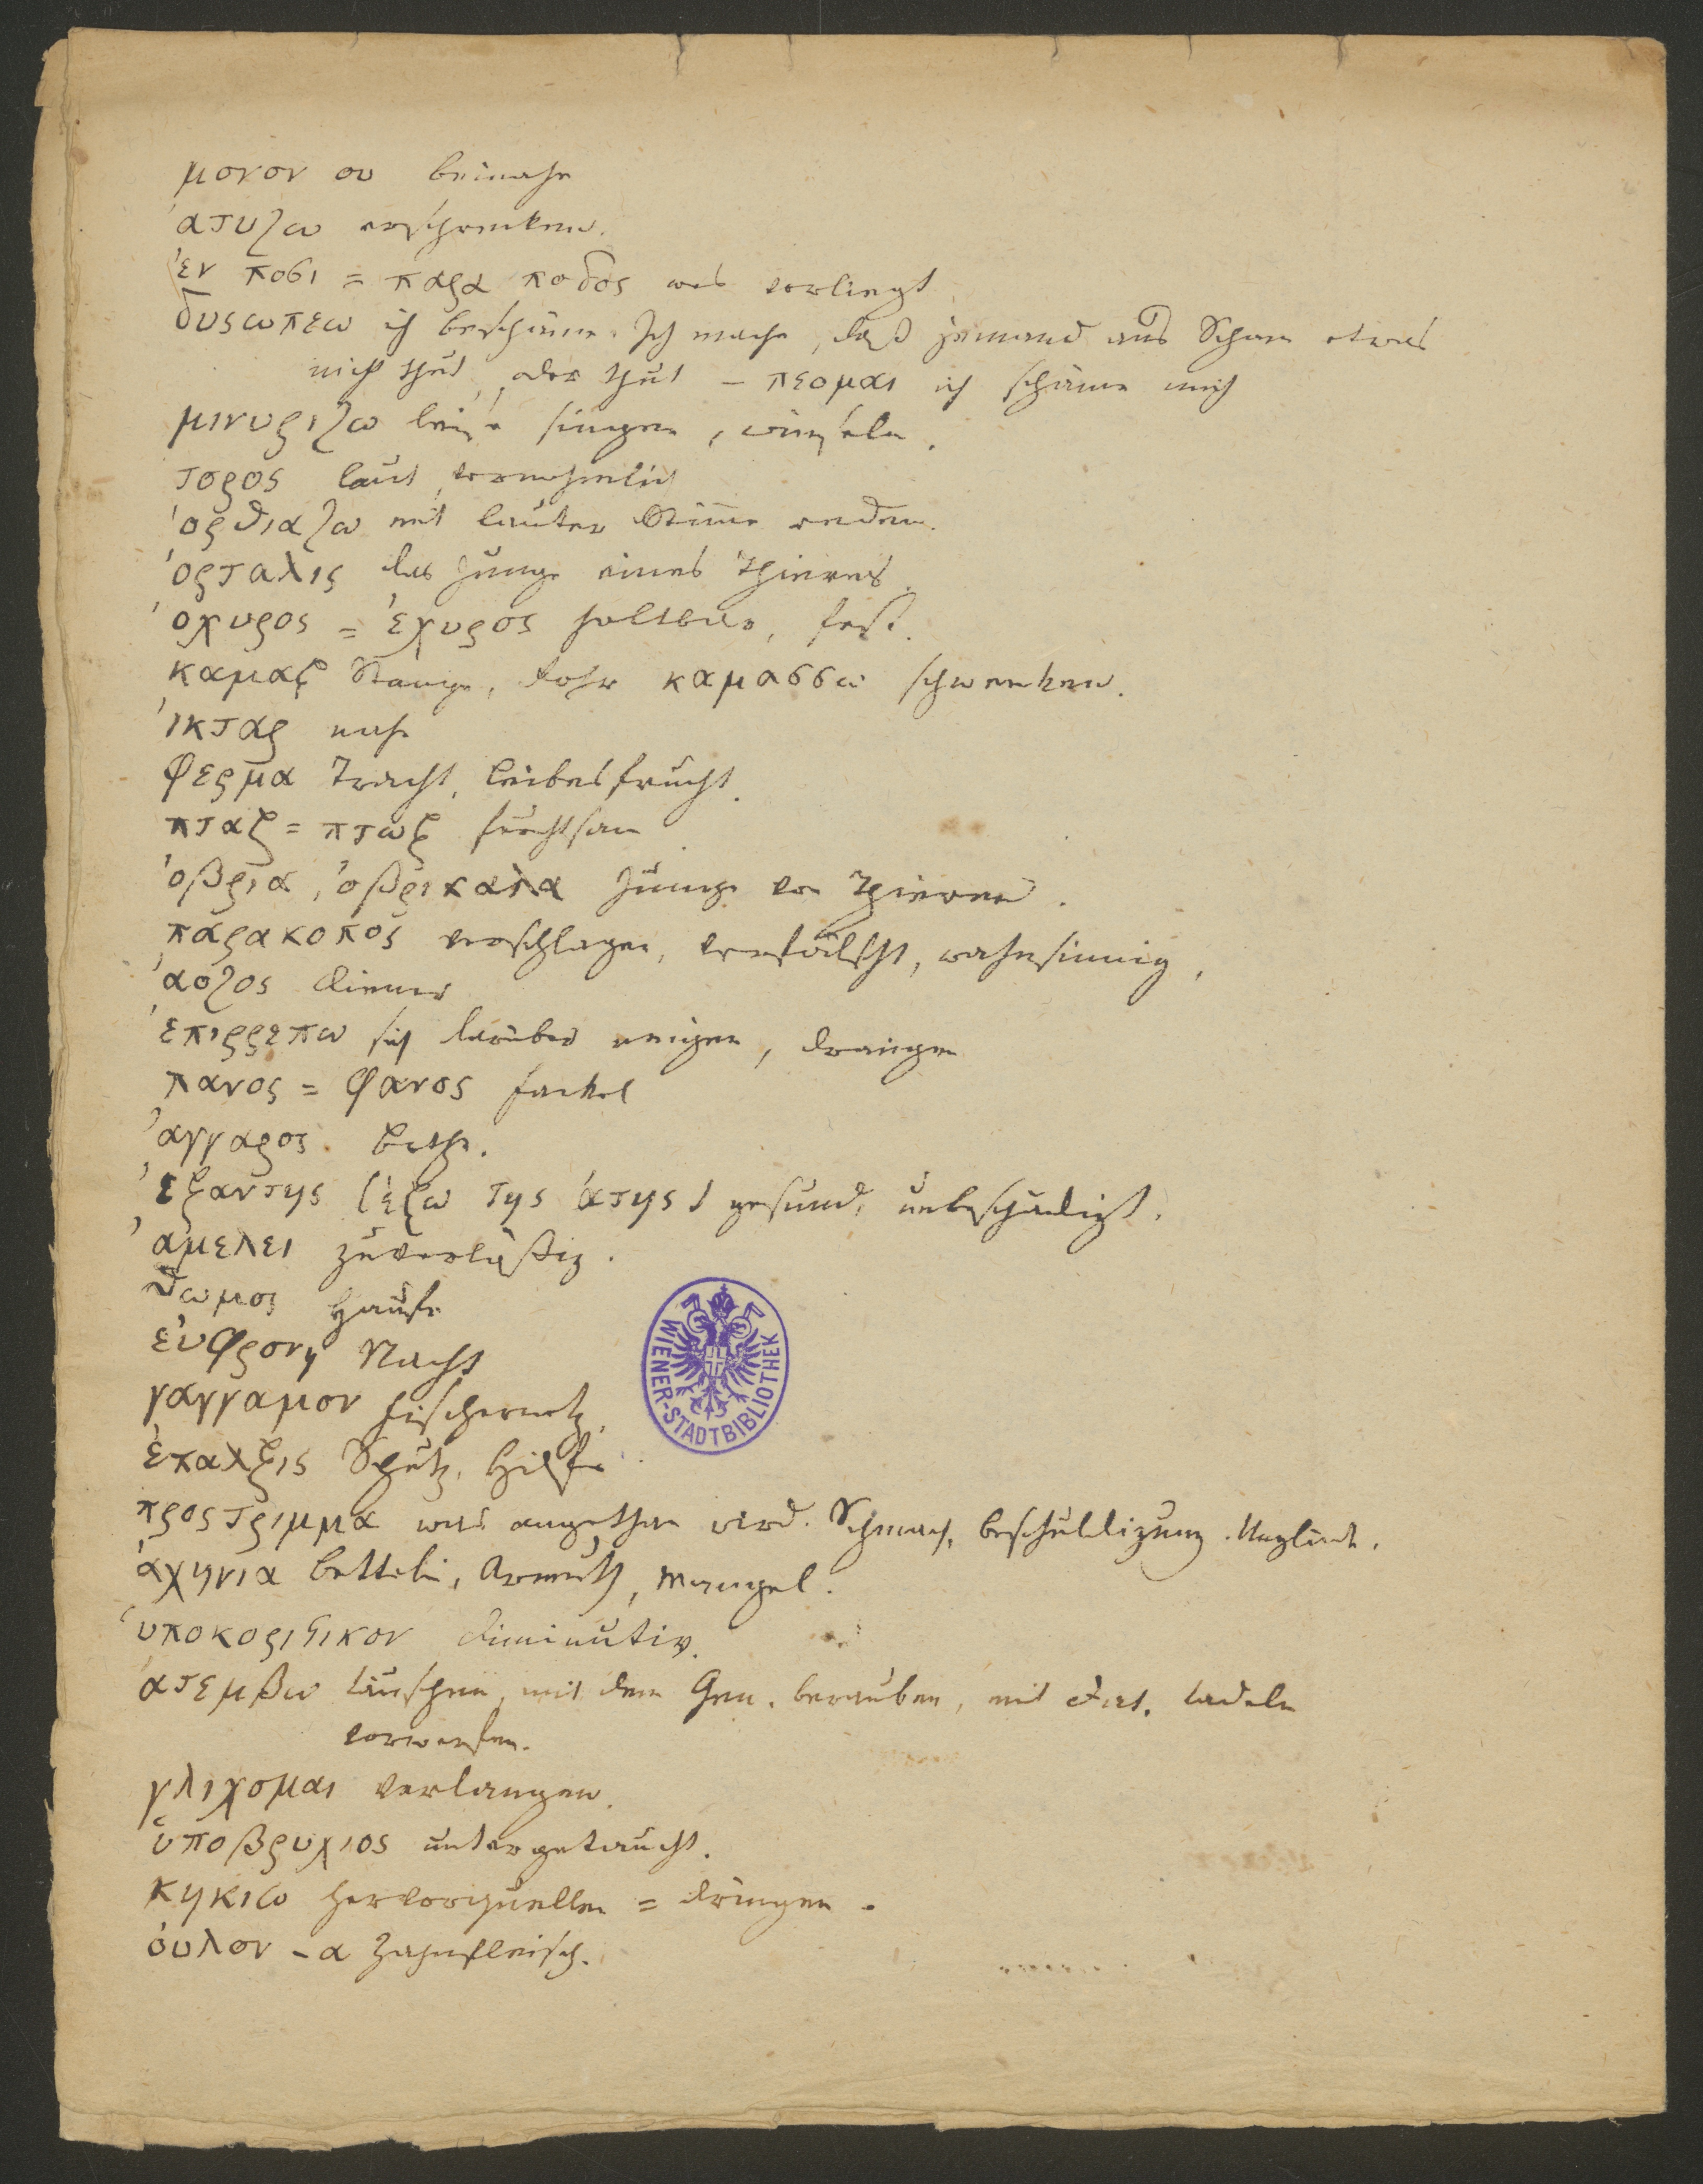 μονον ου beinahe
ἀτυζω erschrecken.
ἐν ποσι = παρα ποδος was vorliegt
δυςωπεω ich beschäme. Ich mache, daß jemand aus Scham etwas
nicht thut, oder thut – πεομαι ich schäme mich
μινυριζω leise singen, winseln.
τορος laut, vernehmlich
ὀρθιαζω mit lauter Stimme reden.
ὀρταλις das Junge eines Thieres.
ὀχυρος = ἐχυρος haltbar, fest.
καμαξ Stange, Rohr καμασσω schwenken.
ἰκταρ nahe
φερμα Tracht, Leibesfrucht.
πταξ = πτωξ furchtsam
ὀβρια, ὀβρικαλα Junge von Thieren.
παρακοπος verschlagen, verfälscht, wahnsinnig,
ἀοζος Diener
ἐπιρρεπω sich darüber neigen, drängen
πανος = φανος Fackel
ἀγγαρος Bothe.
ἐξαντης (ἐξω της ἀτης) gesund, unbeschädigt.
ἀμελει zuverläßig.
θωμος Haufe
ἐυφρονη Nacht
γαγγαμον Fischernetz,
ἐπαλξις Schutz, Hilfe
προςτριμμα was angethan wird. Schmach, Beschuldigung. Unglück.
ἀχηνια Bettelei, Armuth, Mangel.
ὑποκοριϛικον Diminutiv.
ἀτεμβω täuschen, mit dem Gen. berauben, mit Dat. tadeln
vorwerfen.
γλιχομαι verlangen.
ὑποβρυχιος untergetaucht.
κηκιω hervorquellen = dringen.
ὀυλον –α Zahnfleisch.
WIENER-STADTBIBLIOTHEK